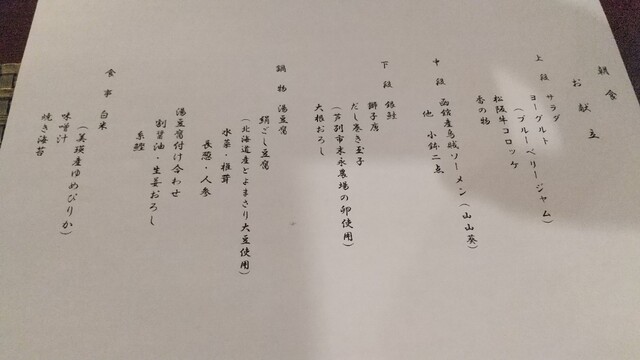 朝食
お献立
上段 サラダ
ヨーグルト
(ブルーベリージャム)
松阪牛コロッケ
香の物
中段 函館産烏賊ソーメン(山山葵)
他 小鉢二点
下段 銀鮭
獅子唐
だし巻き玉子
(芦別市末永農場の卵使用)
大根おろし
鍋物 湯豆腐
絹ごし豆腐
(北海道産とよまさり大豆使用)
水菜・椎茸
長葱・人参
湯豆腐付け合わせ
割醤油・生姜おろし
糸鰹
食事 白米
(美瑛産ゆめぴりか)
味噌汁
焼き海苔